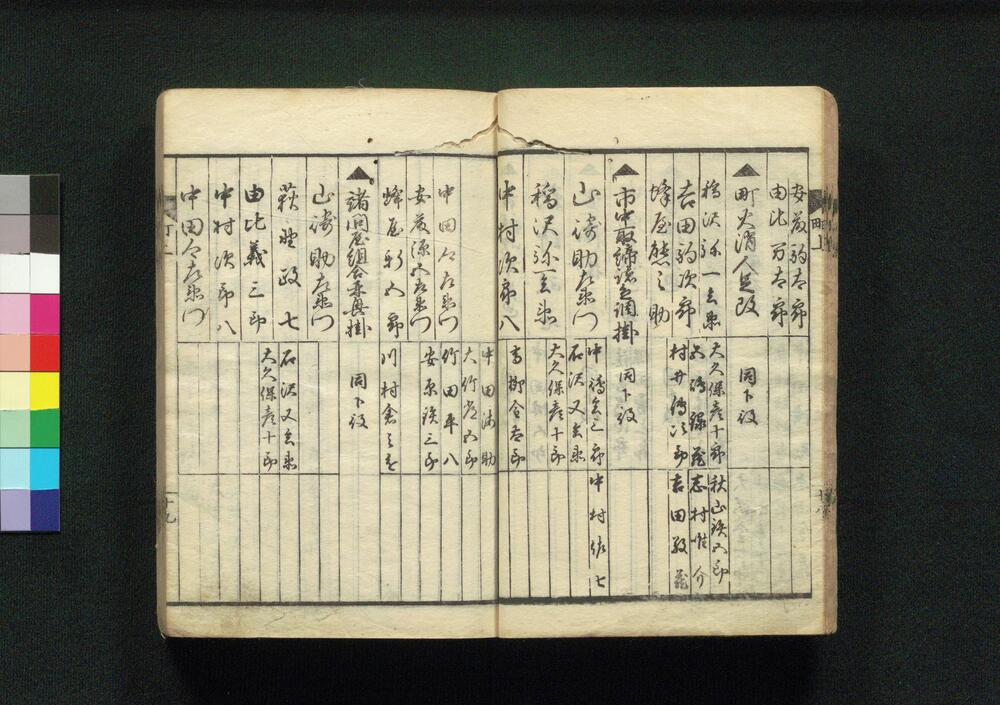 安藤駒太郎
由比万太郎
町火消人足改 同下役
稲沢弥一兵衛 大久保彦十郎 秋山鉄五郎
吉田駒次郎 五嶋録蔵 志村惟介
蜂屋熊之助 村井傳次郎 吉田敬蔵
市中取締諸色調掛 同下役
山崎助左衛門 中嶋嘉三郎 中村佐七
稲沢弥一兵衛 石沢又兵衛
大久保彦十郎
中村次郎八 高柳金太郎
中田清助
中田久左衛門 大竹彦五郎
安藤源五左衛門 竹田平八
蜂屋新五郎 安原鉄三郎
川村禽
諸問屋組合再興掛 同下役
山崎助左衛門
萩野政七 石沢又兵衛
由比義三郎 大久保彦十郎
中村次郎八
中田久左衛門
町上